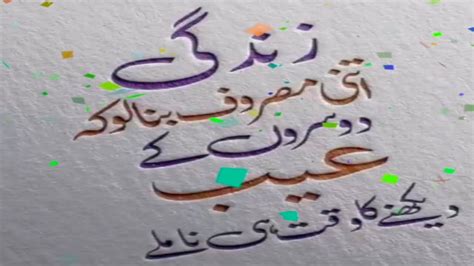 زندگی
اتنی مصروف بنا لو کہ
دوسروں کے
عیب
دیکھنے کا وقت ہی نا ملے